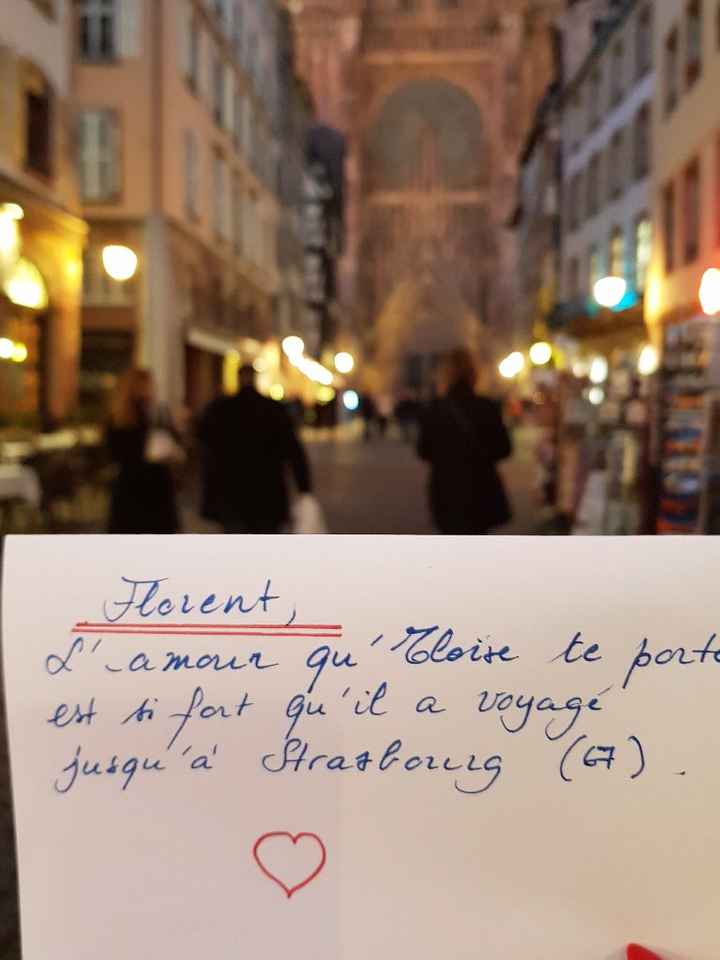 Florent,
L'amour qu'Eloïse te porte
est si fort qu'il a voyagé
jusqu'à Strasbourg (67).